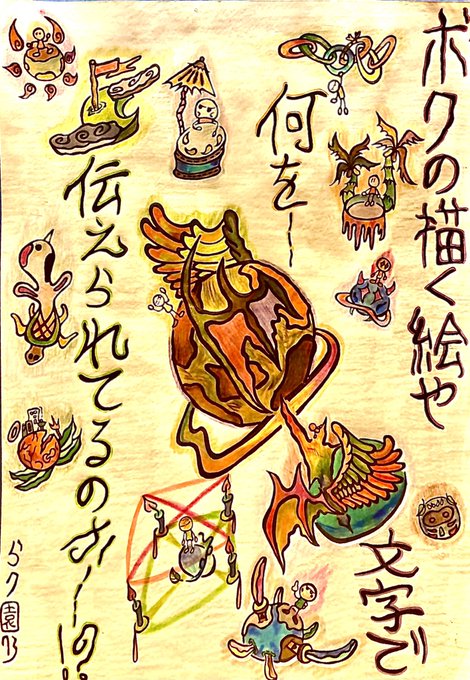 ボクの描く絵や
文字で
何をー
伝えられてるの
らク園